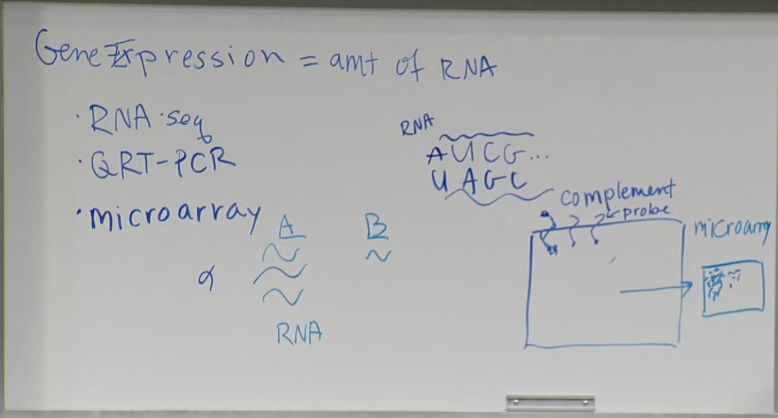 Gene Expression = amt of RNA
· RNA-seq
· QRT-PCR
· microarray
A B
α
RNA
RNA
AUCG...
UAGC
complement
probe
microarray